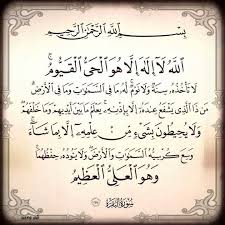 بِسْمِ اللَّهِ الرَّحْمَٰنِ الرَّحِيمِ
اللَّهُ لَا إِلَٰهَ إِلَّا هُوَ الْحَيُّ الْقَيُّومُ ۚ
لَا تَأْخُذُهُ سِنَةٌ وَلَا نَوْمٌ لَّهُ مَا فِي السَّمَٰوَٰتِ وَمَا فِي الْأَرْضِ
مَن ذَا الَّذِي يَشْفَعُ عِندَهُ إِلَّا بِإِذْنِهِ يَعْلَمُ مَا بَيْنَ أَيْدِيهِمْ وَمَا خَلْفَهُمْ
وَلَا يُحِيطُونَ بِشَيْءٍ مِّنْ عِلْمِهِ إِلَّا بِمَا شَاءَ ۚ
وَسِعَ كُرْسِيُّهُ السَّمَٰوَٰتِ وَالْأَرْضَ وَلَا يَئُودُهُ حِفْظُهُمَا ۚ
وَهُوَ الْعَلِيُّ الْعَظِيمُ
سُورَةُ الْبَقَرَة